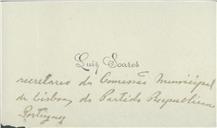 Luiz Soares
secretario da Comissão Municipal
de Lisboa, do Partido Republicano
Portuguez